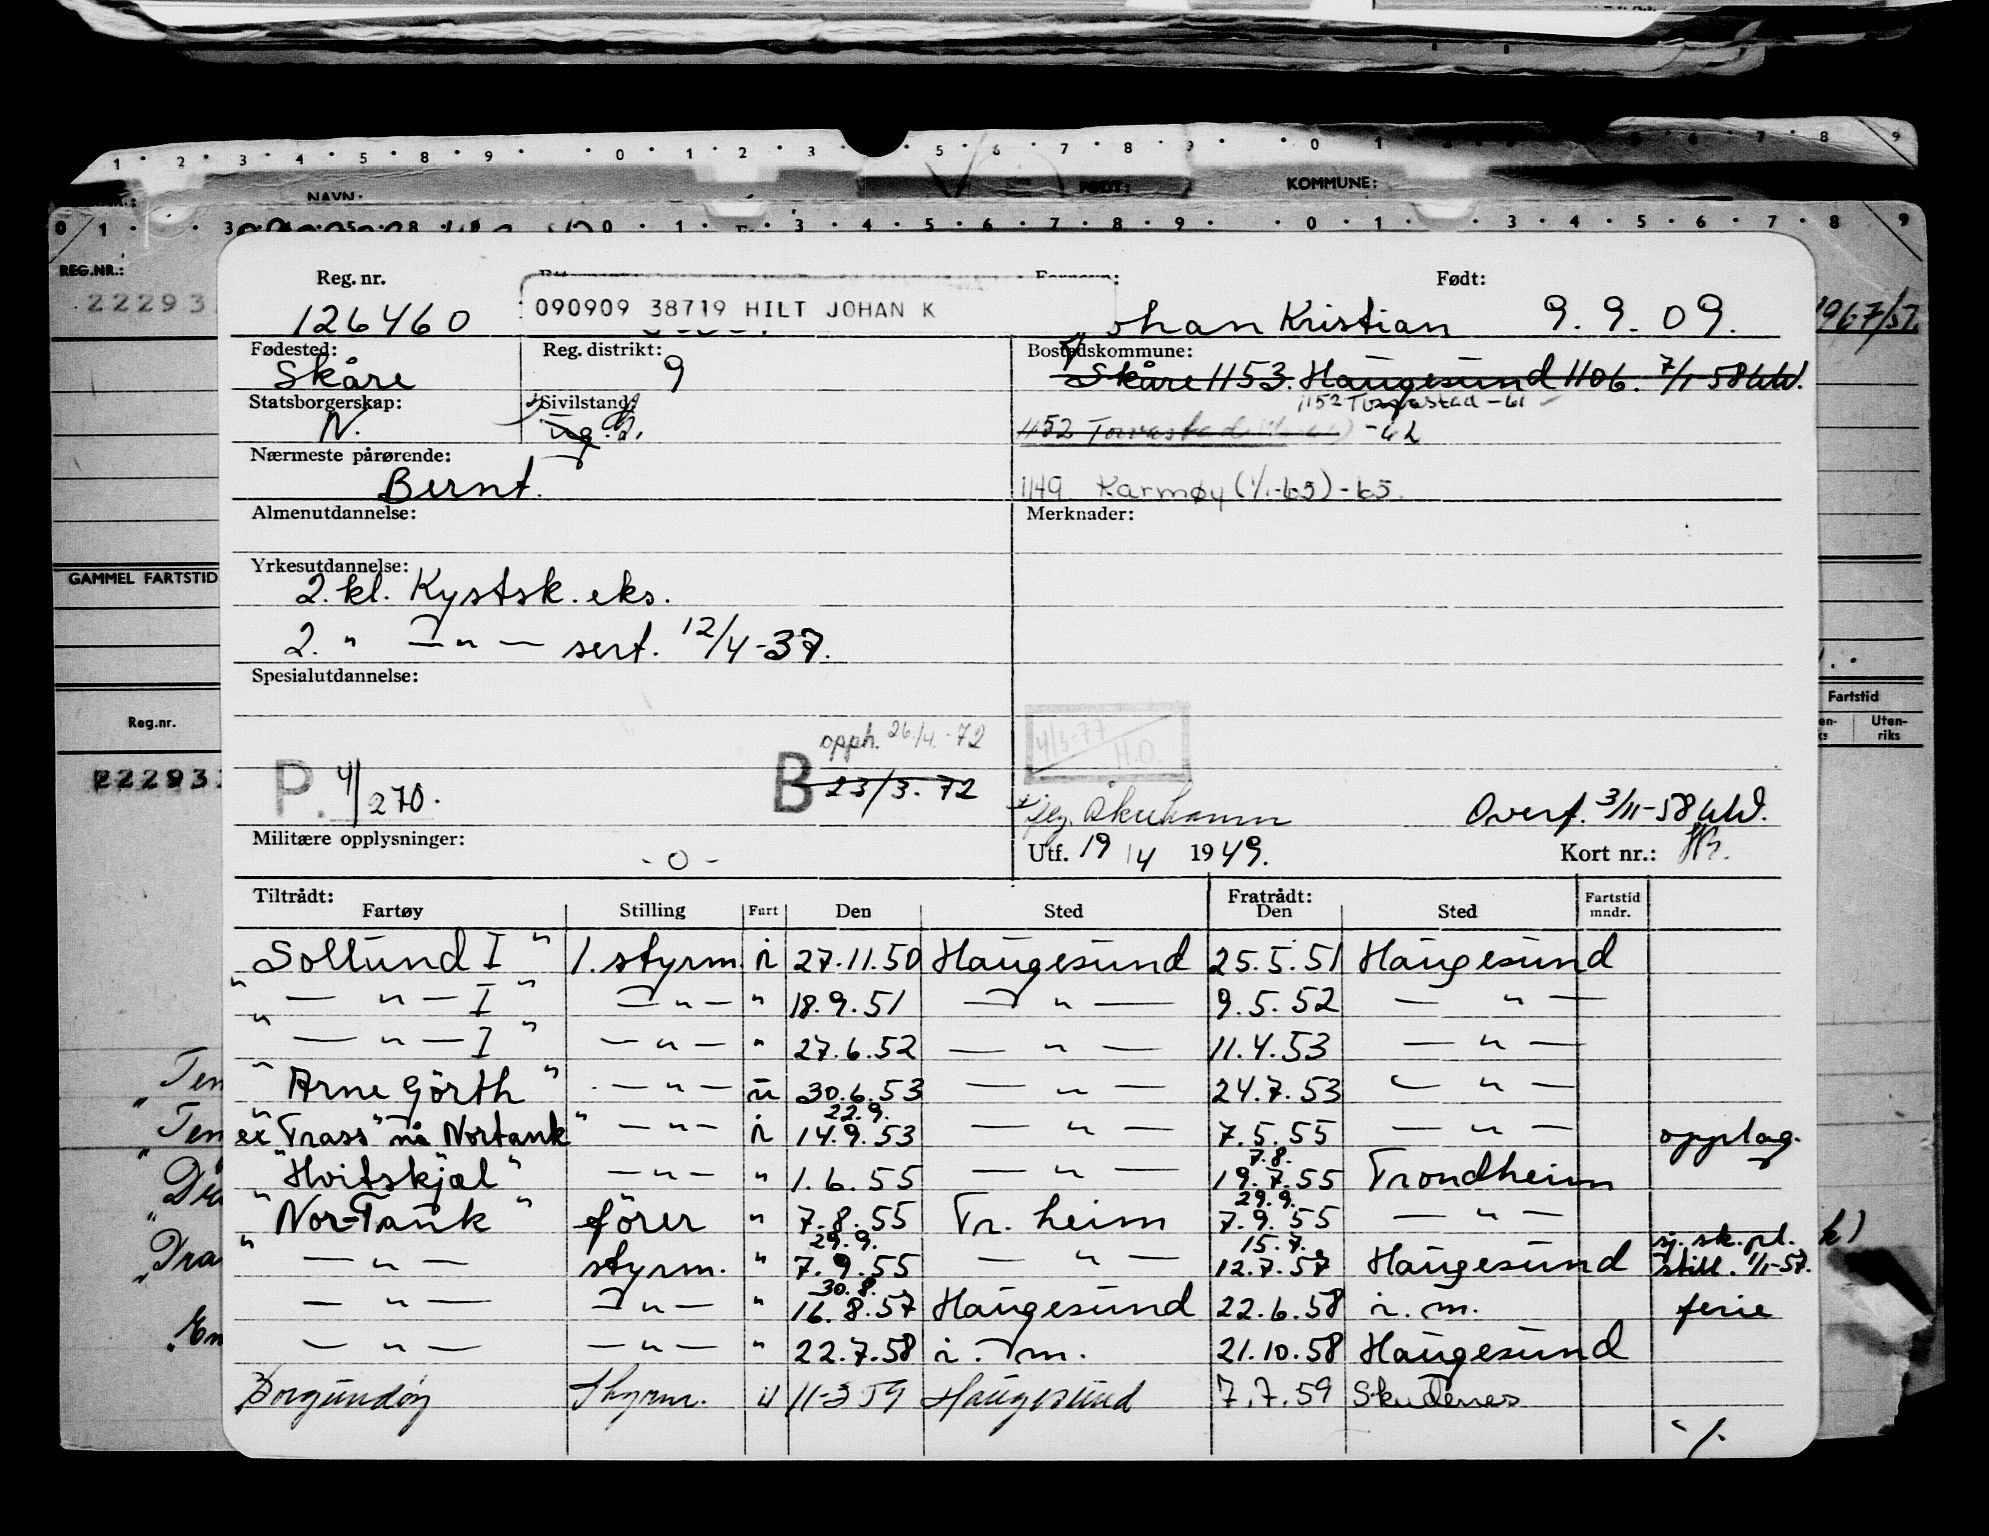 1 · 2 · 3 · 4 · 5 · 8 · 9 · · 0 · 1 · 2 · 3 · 5 · 6 · 7 · 8 · 9 · · 0 1 5 · 6 · 7 · 8 9
NAVN: FØDT: KOMMUNE:
0 1 · 3 0 · 1 · 3 · 4 · 5 · 6 · 7 · 8 · 9 · · 0 · 1 · 3 · 4 · 5 · 6 · 7 · 8 9
REG.NR.:
22293
1967/57.
Reg. nr. Født:
126460 090909 38719 HILT JOHAN K Johan Kristian 9. 9. 09.
Fødested: Reg. distrikt: Bostedskommune:
Skåre 9 Skåre 1153. Haugesund 1106. 7/1-58
Statsborgerskap: Sivilstand: 1152 Torvastad -61
N. Ug. G. 1152 Torvastad -62
Nærmeste pårørende:
Bernt. 1149 Karmøy (1/1-65) -65.
Almenutdannelse: Merknader:
Yrkesutdannelse:
2. kl. Kystsk. eks.
2. " — " — sert. 12/4-37.
Spesialutdannelse:
opph. 26/4.-72 4/3-77 H.O.
P. 4/270. B 23/3. 72
Åkrehamn Overf. 3/11-58
Militære opplysninger: Utf. 19/4 1949. Kort nr.:
- 0 -
GAMMEL FARTSTID
Reg.nr.
22293
Fartstid
Uten-
riks
Tiltrådt: Fratrådt: Fartstid
Fartøy Stilling Fart Den Sted Den Sted mndr.
Sollund I " 1. styrm. i 27.11.50 Haugesund 25.5.51 Haugesund
" — " — I " — " — " 18.9.51 — " — 9.5.52 — " —
" — " — I " — " — " 27.6.52 — " — 11.4.53 — " —
" Arne Görth " — " — u 30.6.53 — " — 24.7.53 — " —
22.9.
ex "Trass" nå Nortank " — " — i 14.9.53 — " — 7.5.55 — " — opplag.
7.8.
"Hvitskjæl" — " — " 1.6.55 — " — 19.7.55 Trondheim
29.9.
" Nor-Tank " fører " 7.8.55 Tr. heim 7.9.55 — " —
29.9. 15.7. sj. sk. pl.
" — " — styrm. " 7.9.55 — " — 12.7.57 Haugesund still. 1/1-57.
30.8.
— " — — " — " 16.8.57 Haugesund 22.6.58 i. m. ferie
— " — — " — " 22.7.58 i. m. 21.10.58 Haugesund
Borgundøy Styrm. u 11-3 59 Haugesund 7.7.59 Skudenes
%.